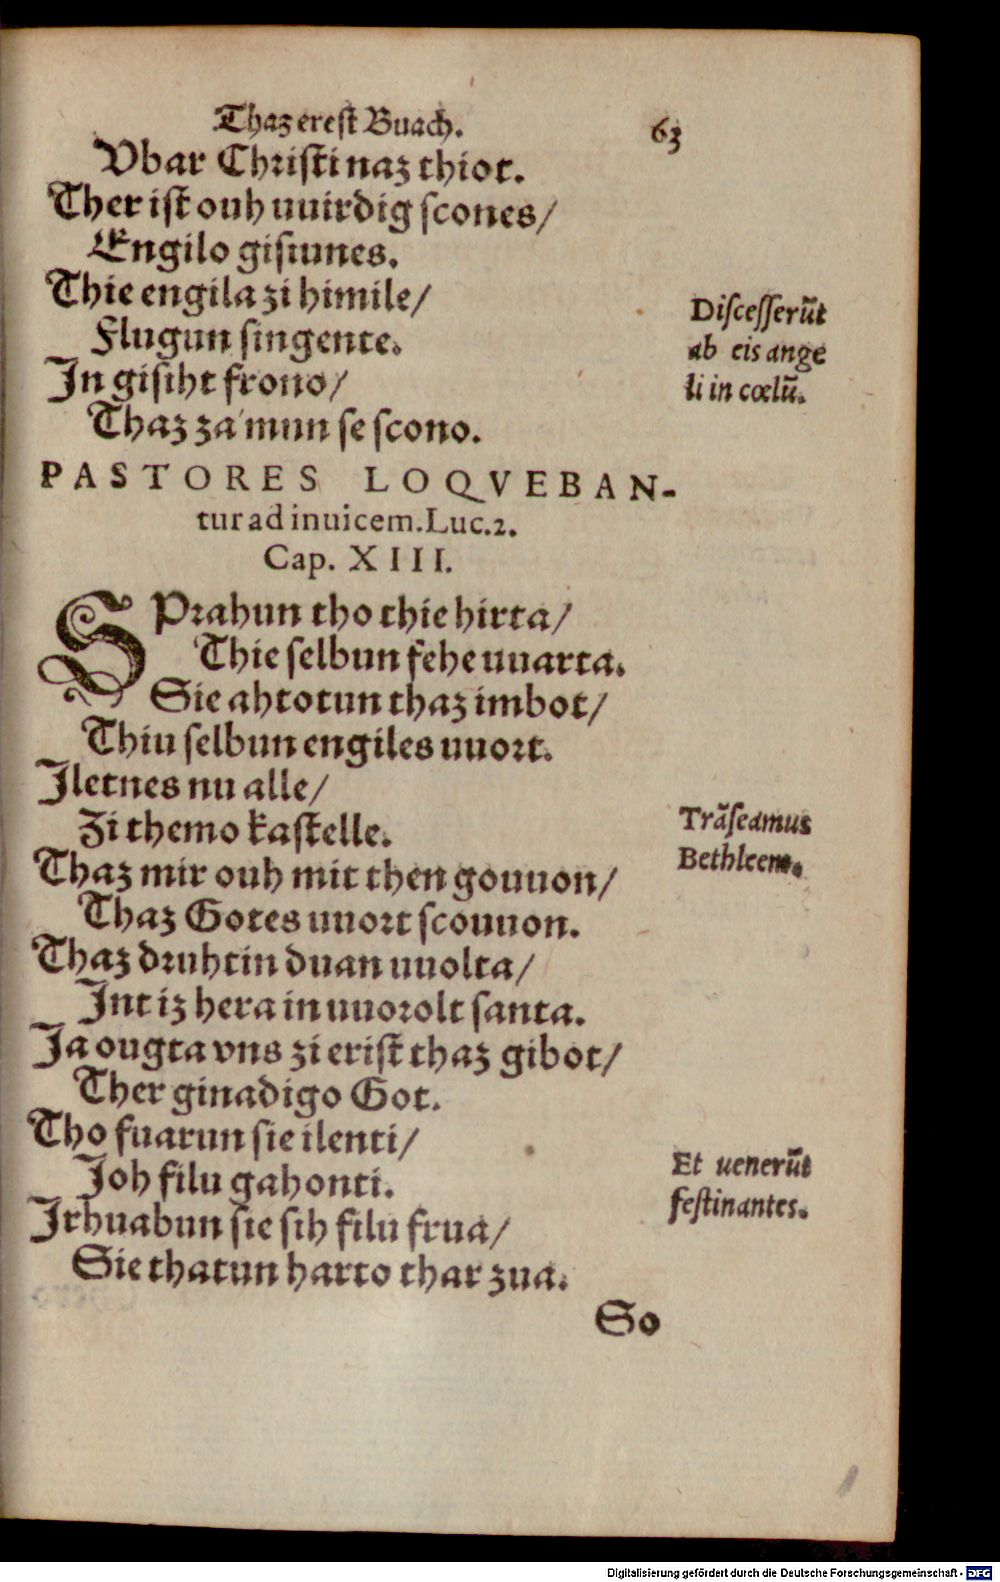 Thaz erest Buach. 63
Vbar Christinaz thiot.
Ther ist ouh uuirdig scones/
Engilo gisiunes.
Thie engila zi himile/
Flugun singente.
In gisiht frono/
Thaz zamun se scono.
Discesserūt
ab eis ange
li in cœlū.
PASTORES LOQVEBAN-
tur ad inuicem. Luc. 2.
Cap. XIII.
SPrahun tho thie hirta/
Thie selbun fehe uuarta.
Sie ahtotun thaz imbot/
Thiu selbun engiles uuort.
Iletnes nu alle/
Zi themo kastelle.
Thaz mir ouh mit then gouuon/
Thaz Gotes uuort scouuon.
Thaz druhtin duan uuolta/
Int iz hera in uuorolt santa.
Ia ougta vns zi erist thaz gibot/
Ther ginadigo Got.
Tho fuarun sie ilenti/
Ioh filu gahonti.
Irhuabun sie sih filu frua/
Sie thatun harto thar zua.
Trāseamus
Bethleem.
Et uenerūt
festinantes.
So
Digitalisierung gefördert durch die Deutsche Forschungsgemeinschaft - DFG